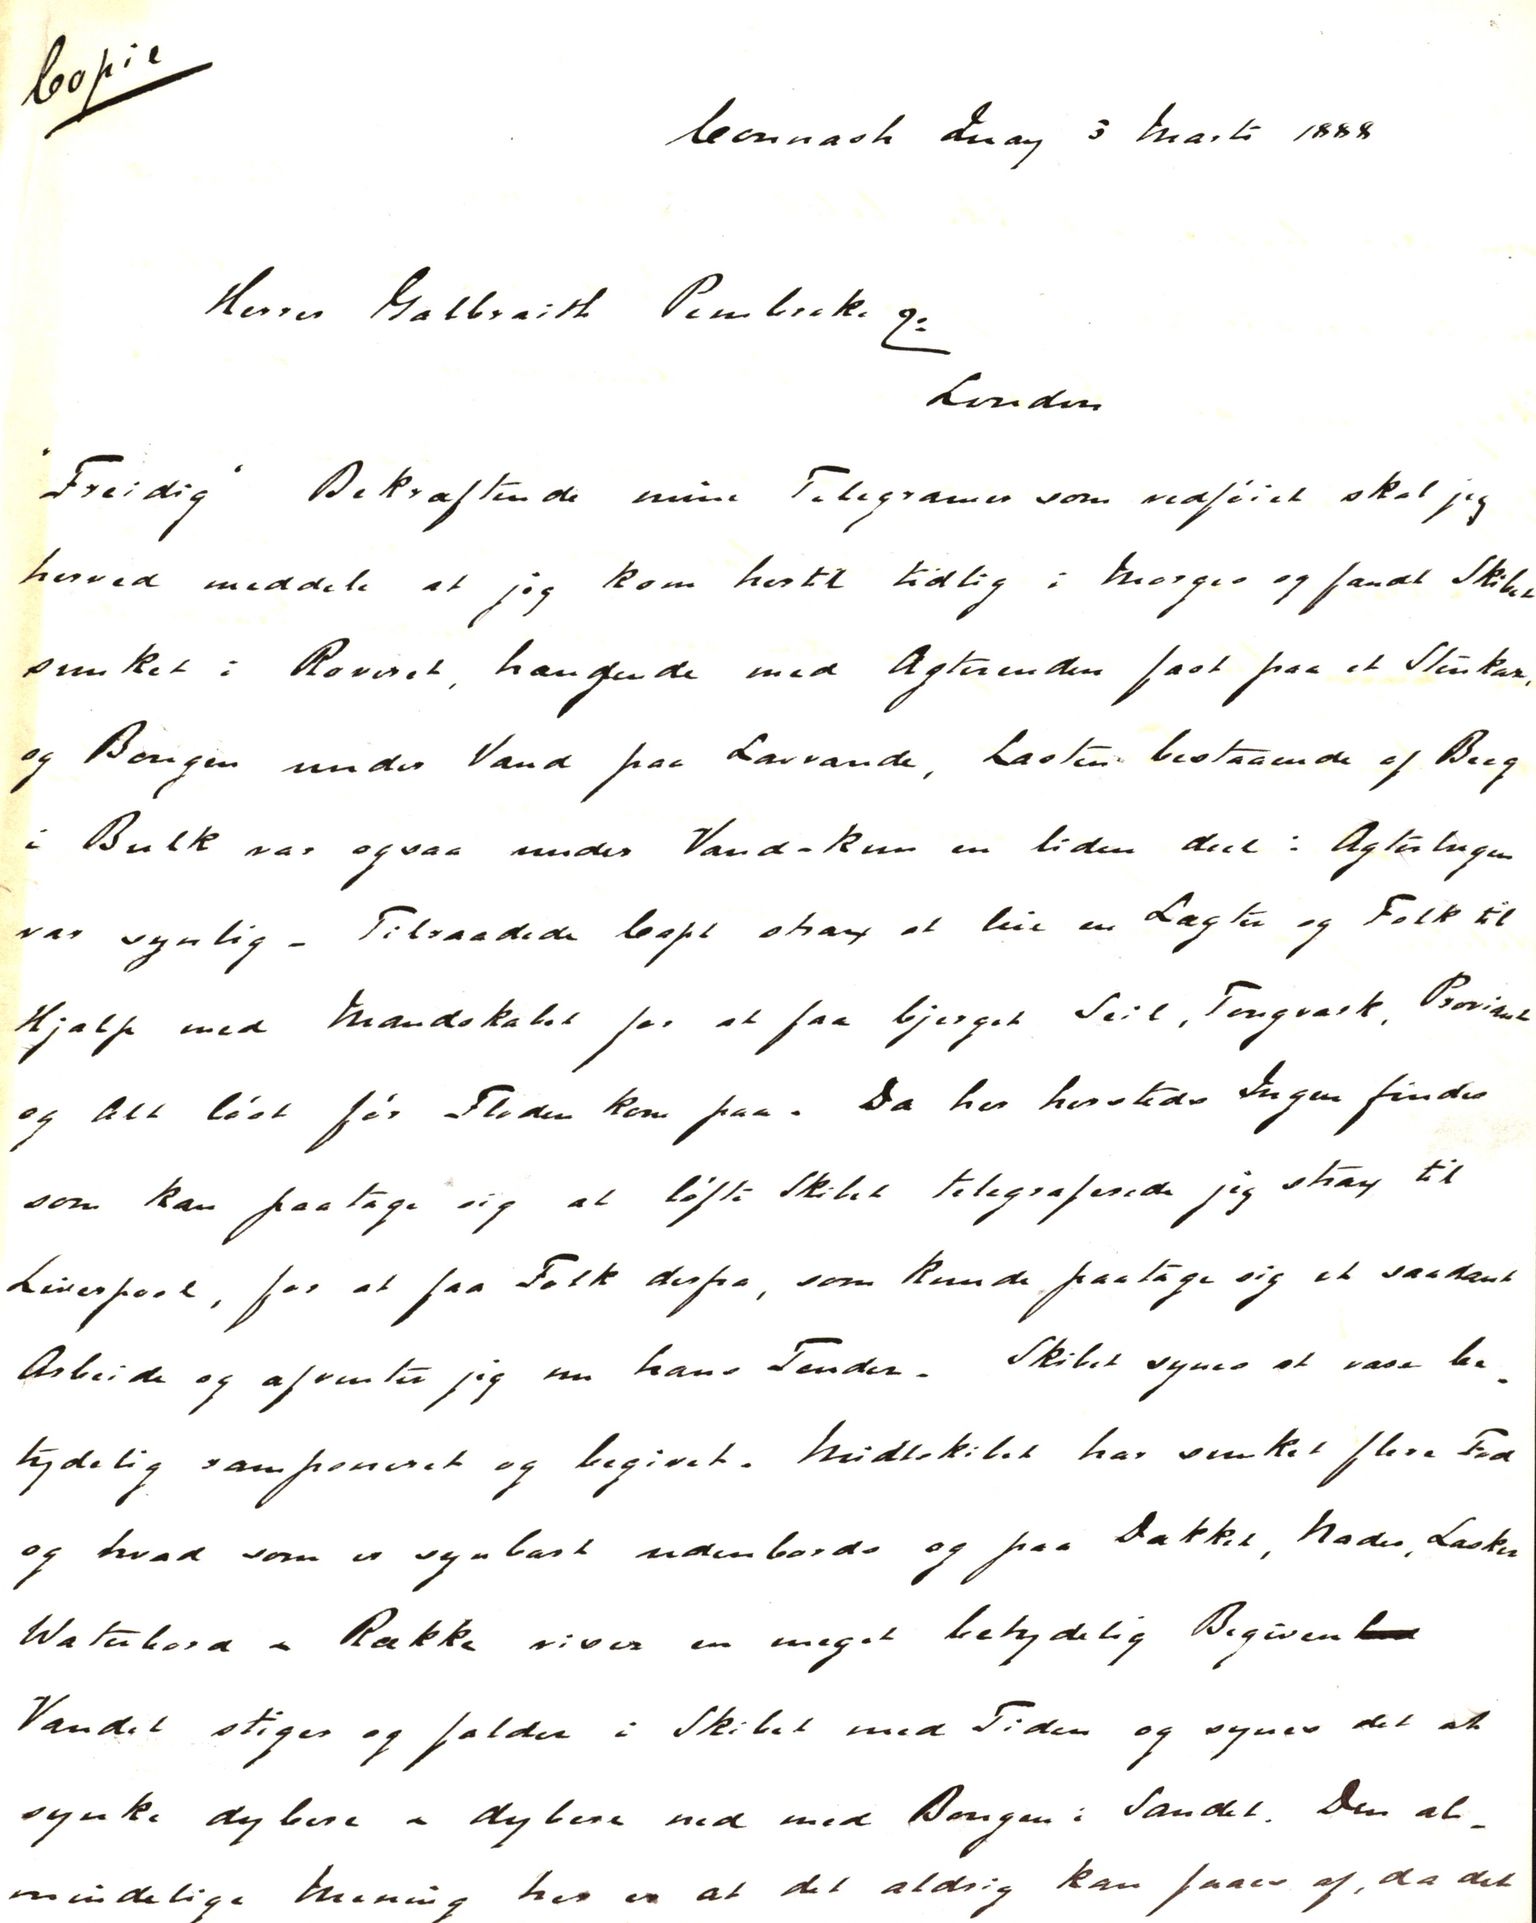 Copie
Connash Quay 3 Marts 1888
Herrer Galbraith Pembroke Co
London
"Freidig" Bekræftende mine Telegramer som vedføiet skal jeg
herved meddele at jeg kom hertil tidlig i Morges og fandt Skibet
sunket i Reveret, hængende med Agterenden fast paa et Stenkar,
og Bougen under Vand paa Lavvande, Lasten bestaaende af Byg
i Bulk var ogsaa under Vand - kun en liden deel i Agterlugen
var synlig - Tilraadede Capt strax at leie en Lægter og Folk til
Hjælp med Mandskabet for at faa bjerget Seil, Tougværk, Proviant
og Alt løst før Floden kom paa. Da her hersteds Ingen findes
som kan paatage sig at løfte Skibet telegraferede jeg strax til
Liverpool, for at faa Folk derfra, som kunde paatage sig et saadant
Arbeide og afventer jeg nu hans Tender. Skibet synes at være be-
tydelig ramponeret og begivet. Midtskibet har sunket flere Fod
og hvad som er synbart udenbords og paa Dækket, Nader, Lasker
Waterbord & Række viser en meget betydelig Begiven
Vandet stiger og falder i Skibet med Tiden og synes det at
synke dybere & dybere ned med Bougen i Sandet. Den al-
mindelige Mening her er at det aldrig kan faaes af, da det